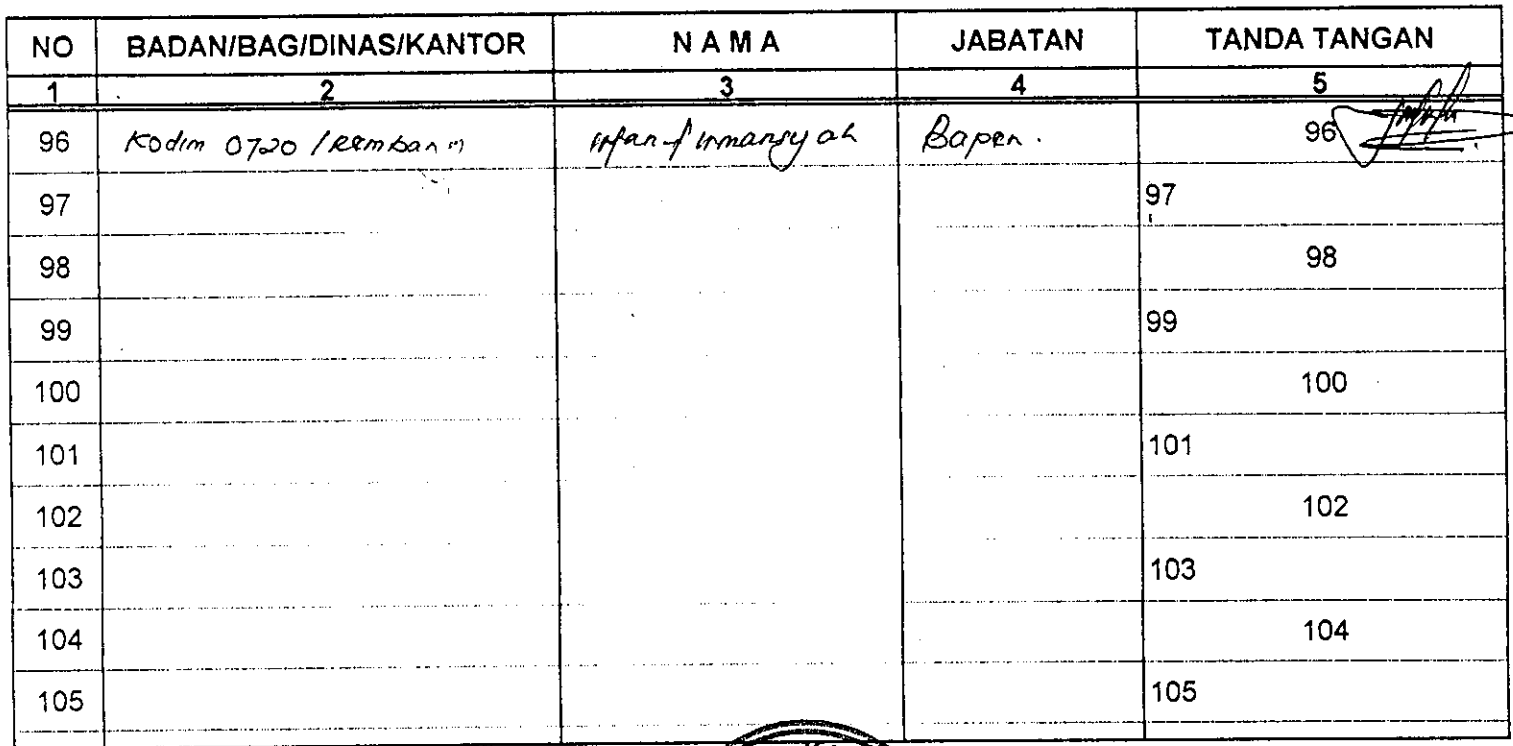 NO BADAN/BAG/DINAS/KANTOR N A M A JABATAN TANDA TANGAN
1 2 3 4 5
96 Kodim 0720 / Rembang Irfan firmansyah Bapen. 96
97 97
98 98
99 99
100 100
101 101
102 102
103 103
104 104
105 105